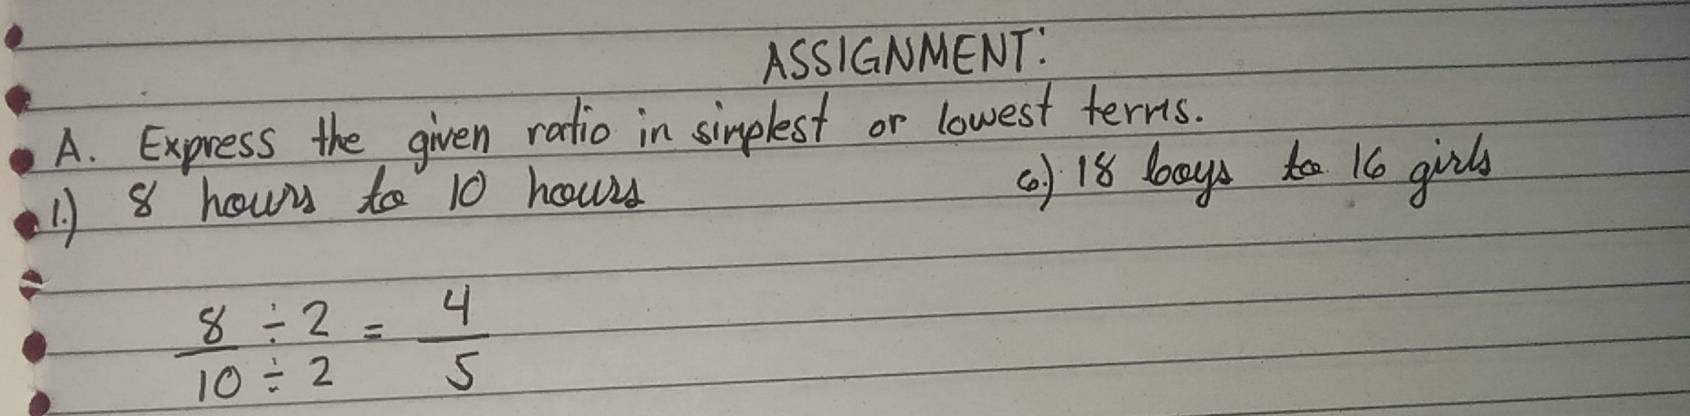 ASSIGNMENT:
A. Express the given ratio in simplest or lowest terms.
1.) 8 hours to 10 hours
6.) 18 boys to 16 girls
8 ÷ 2 = 4
10 ÷ 2 5